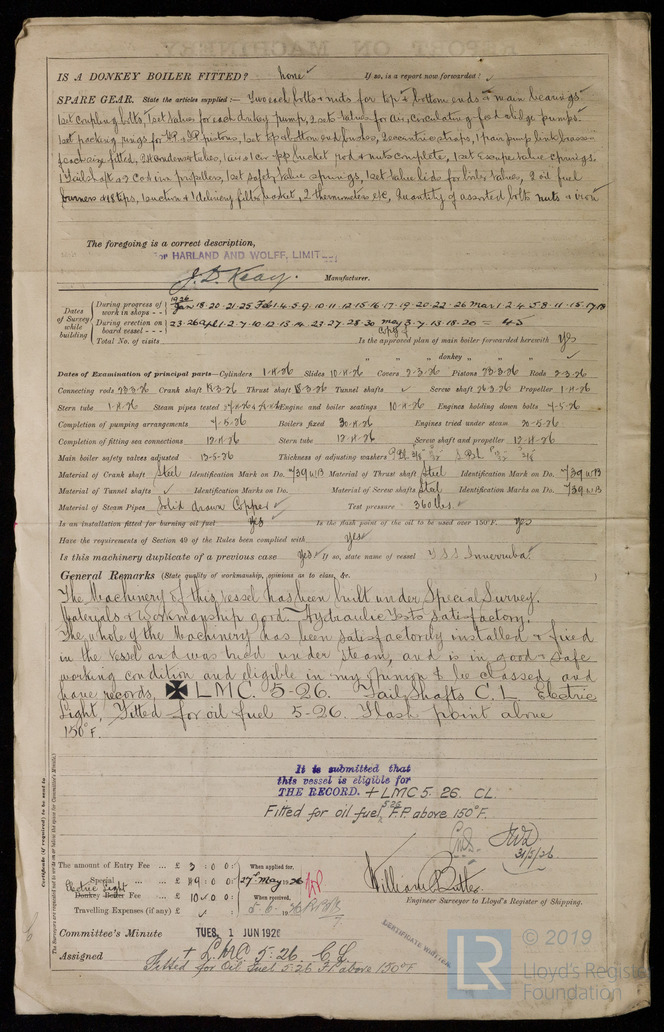 IS A DONKEY BOILER FITTED? none If so, is a report now forwarded?
SPARE GEAR. State the articles supplied:— Two each bolts & nuts for top & bottom ends & main bearings
1 set coupling bolts, 1 set valves for each donkey pump, 2 sets valves for air, circulating, feed & bilge pumps.
1 set packing rings for HP & IP pistons, 1 set top & bottom end bushes, 2 eccentric straps, 1 pair pump link brasses
of each size fitted, condenser tubes, air pp bucket rod & nuts complete, 1 set escape valve springs.
1 Tailshaft & 2 cast iron propellers, 1 set safety valve springs, 1 set valve lids for boiler valves, 2 oil fuel
burners & tips, 1 suction & 1 delivery filter basket, 2 thermometers etc, Quantity of assorted bolts nuts & iron
The foregoing is a correct description,
For HARLAND AND WOLFF, LIMIT
J. D. Keay. Manufacturer.
Dates of Survey while building
During progress of work in shops - - 1926 Jan 18·20·21·25 Feb 1·4·5·9·10·11·12·15·16·17·19·20·22·26 Mar 1·2·4·5·8·11·15·17·18
During erection on board vessel - - - 23·26 Apl 1·2·7·10·12·13·14·23·27·28·30 May 3·7·13·18·20 = 45
Total No. of visits Is the approved plan of main boiler forwarded herewith Yes
" " " donkey "
Dates of Examination of principal parts—Cylinders 1-4-26 Slides 10-4-26 Covers 2-3-26 Pistons 23-3-26 Rods 2-3-26
Connecting rods 23-3-26 Crank shaft 18-3-26 Thrust shaft 18-3-26 Tunnel shafts Screw shaft 26-3-26 Propeller 1-4-26
Stern tube 1-4-26 Steam pipes tested Engine and boiler seatings 10-4-26 Engines holding down bolts 7-5-26
Completion of pumping arrangements 7-5-26 Boilers fixed 30-4-26 Engines tried under steam 20-5-26
Completion of fitting sea connections 12-4-26 Stern tube 12-4-26 Screw shaft and propeller 12-4-26
Main boiler safety valves adjusted 13-5-26 Thickness of adjusting washers
Material of Crank shaft Steel Identification Mark on Do. 739 WB Material of Thrust shaft Steel Identification Mark on Do. 739 WB
Material of Tunnel shafts Identification Marks on Do. Material of Screw shafts Steel Identification Marks on Do. 739 WB
Material of Steam Pipes Solid drawn Copper Test pressure 360 lbs.
Is an installation fitted for burning oil fuel Yes Is the flash point of the oil to be used over 150°F. yes
Have the requirements of Section 49 of the Rules been complied with Yes
Is this machinery duplicate of a previous case Yes If so, state name of vessel T.S.S. Inverruba
General Remarks (State quality of workmanship, opinions as to class, &c.
The Machinery of this vessel has been built under Special Survey.
Materials & workmanship good. Hydraulic Tests satisfactory.
The whole of the Machinery has been satisfactorily installed & fixed
in the vessel and was tried under steam, and is in good & safe
working condition and eligible in my opinion to be classed and
have records ✠ LMC. 5-26. Tail Shafts C.L. Electric
Light, Fitted for oil fuel 5-26. Flash point above
150°F.
It is submitted that
this vessel is eligible for
THE RECORD. + LMC 5. 26. CL.
Fitted for oil fuel 5.26 F.P. above 150°F.
31/5/26
Certificate (if required) to be sent to
The Surveyors are requested not to write on or below the space for Committee's Minute.
The amount of Entry Fee ... £ 3 : 0 : 0 : When applied for,
Special ... ... £ 49 : 0 : 0 : 27th May 1926
Electric Light
Donkey Boiler Fee ... £ 10 : 0 : 0 : When received,
Travelling Expenses (if any) £ 5-6-1926
Engineer Surveyor to Lloyd's Register of Shipping.
Committee's Minute TUES. 1 JUN 1926
CERTIFICATE WRITTEN
Assigned + LMC 5.26. CL
Fitted for Oil Fuel 5.26 F.P. above 150°F
LR © 2019
Lloyd's Register
Foundation